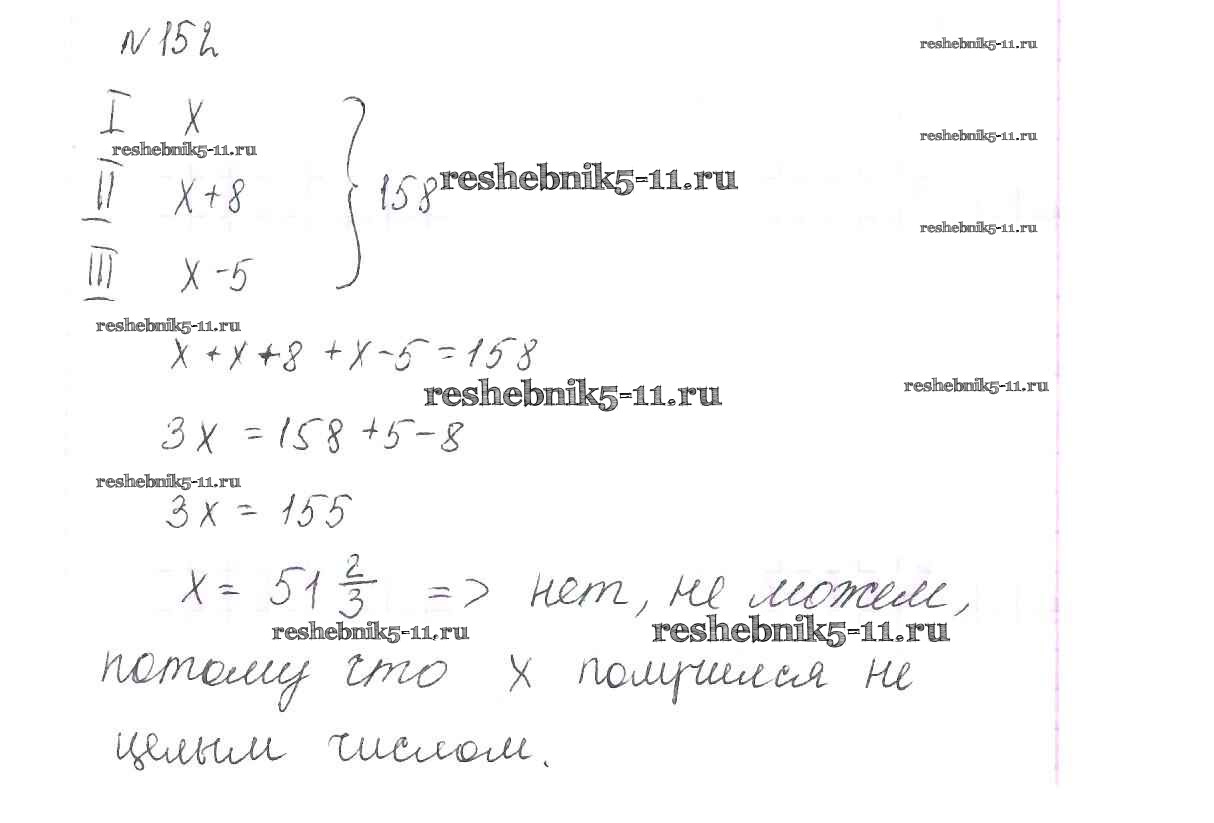 N 152
reshebnik5-11.ru
I X
reshebnik5-11.ru
reshebnik5-11.ru
II X+8
158
reshebnik5-11.ru
reshebnik5-11.ru
III X-5
reshebnik5-11.ru
X+X+8+X-5=158
reshebnik5-11.ru
reshebnik5-11.ru
3X=158+5-8
reshebnik5-11.ru
3X=155
X=51 2/3 => нет, не можем,
reshebnik5-11.ru
reshebnik5-11.ru
потому что X получился не
целым числом.